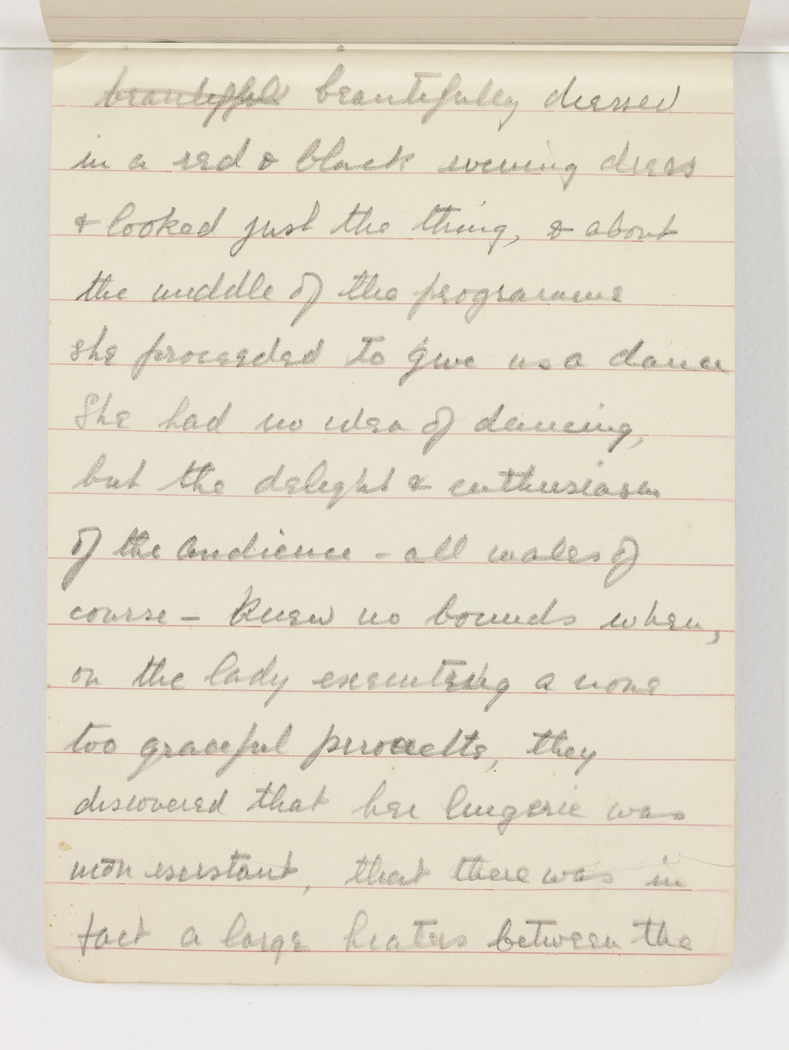 beautiful beautifully dressed
in a red & black evening dress
& looked just the thing, & about
the middle of the programme
she proceeded to give us a dance
She had no idea of dancing,
but the delight & enthusiasm
of the audience - all males of
course - knew no bounds when,
on the lady executing a none
too graceful pirouette, they
discovered that her lingerie was
non existant, that there was in
fact a large hiatus between the